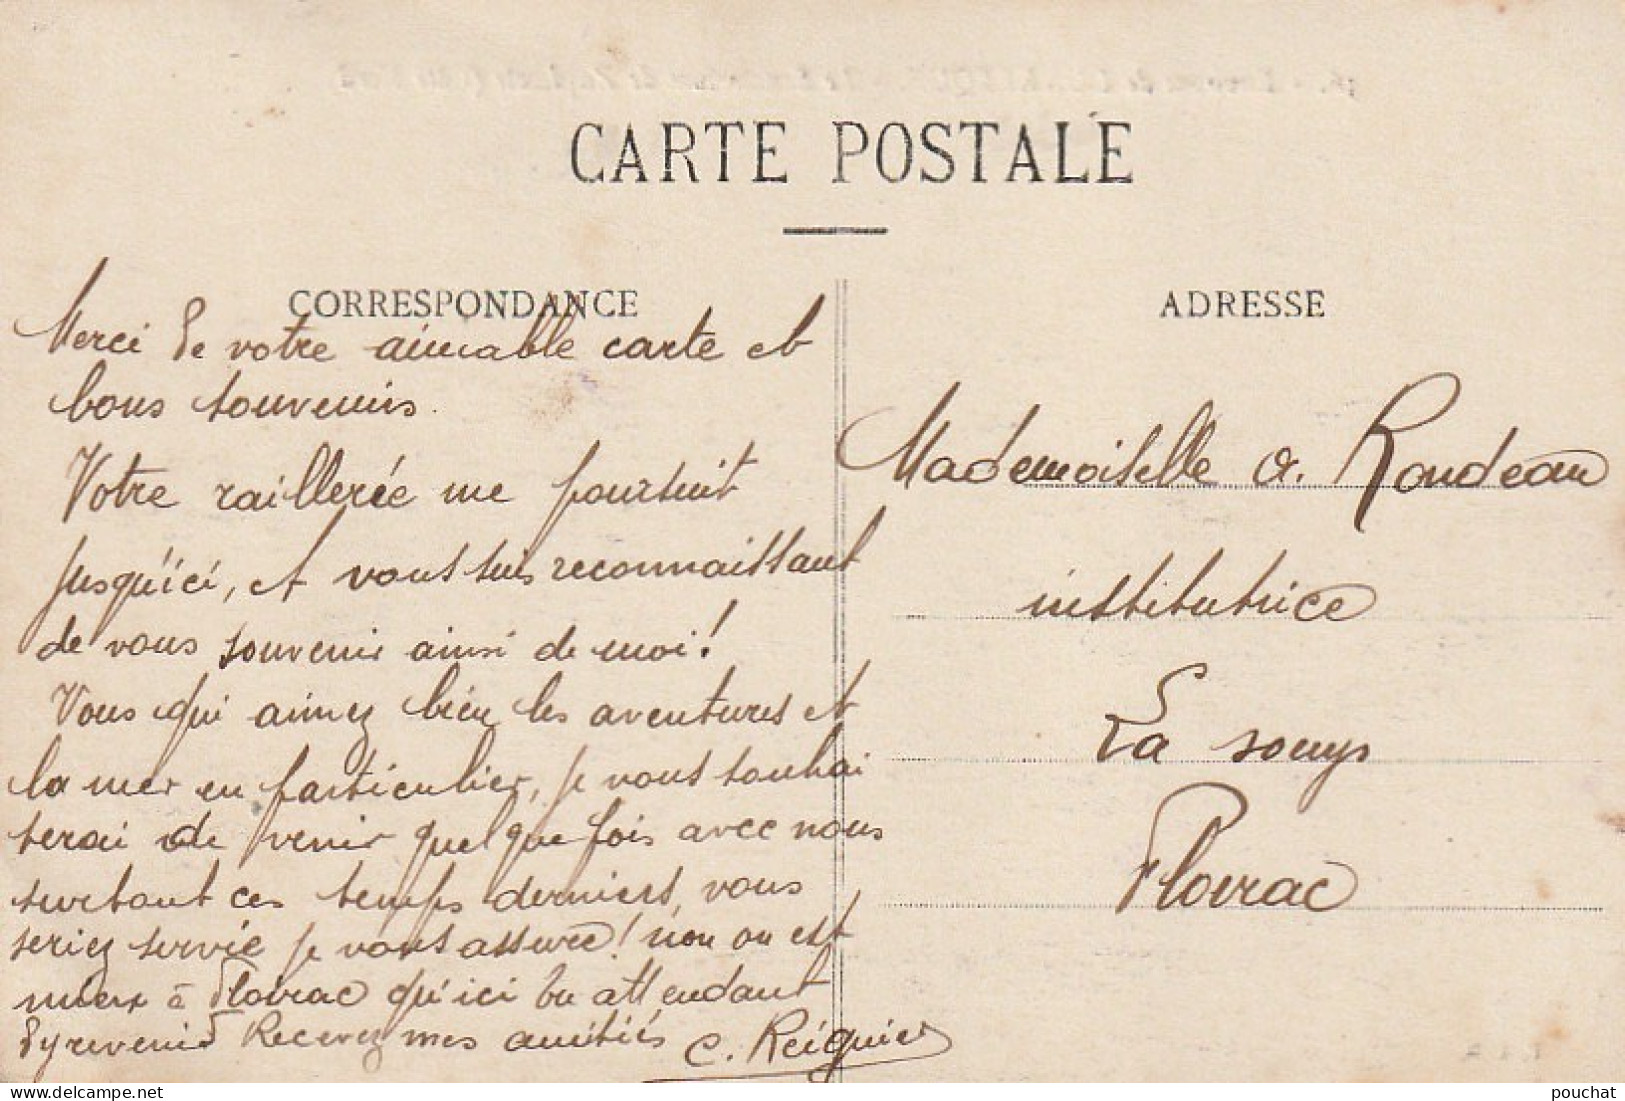 CARTE POSTALE
CORRESPONDANCE
Merci de votre aimable carte et
bons souvenirs.
Votre raillerée me poursuit
jusqu'ici, et vous suis reconnaissant
de vous souvenir ainsi de moi!
Vous qui aimez bien les aventures et
la mer en particulier, je vous souhai
terai de venir quelque fois avec nous
surtout ces temps derniers, vous
seriez servie je vous assure! non on est
mieux à Floirac qu'ici en attendant
d'y revenir Recevez mes amitiés C. Reignier
ADRESSE
Mademoiselle A. Rondeau
institutrice
La souys
Floirac
pouchat